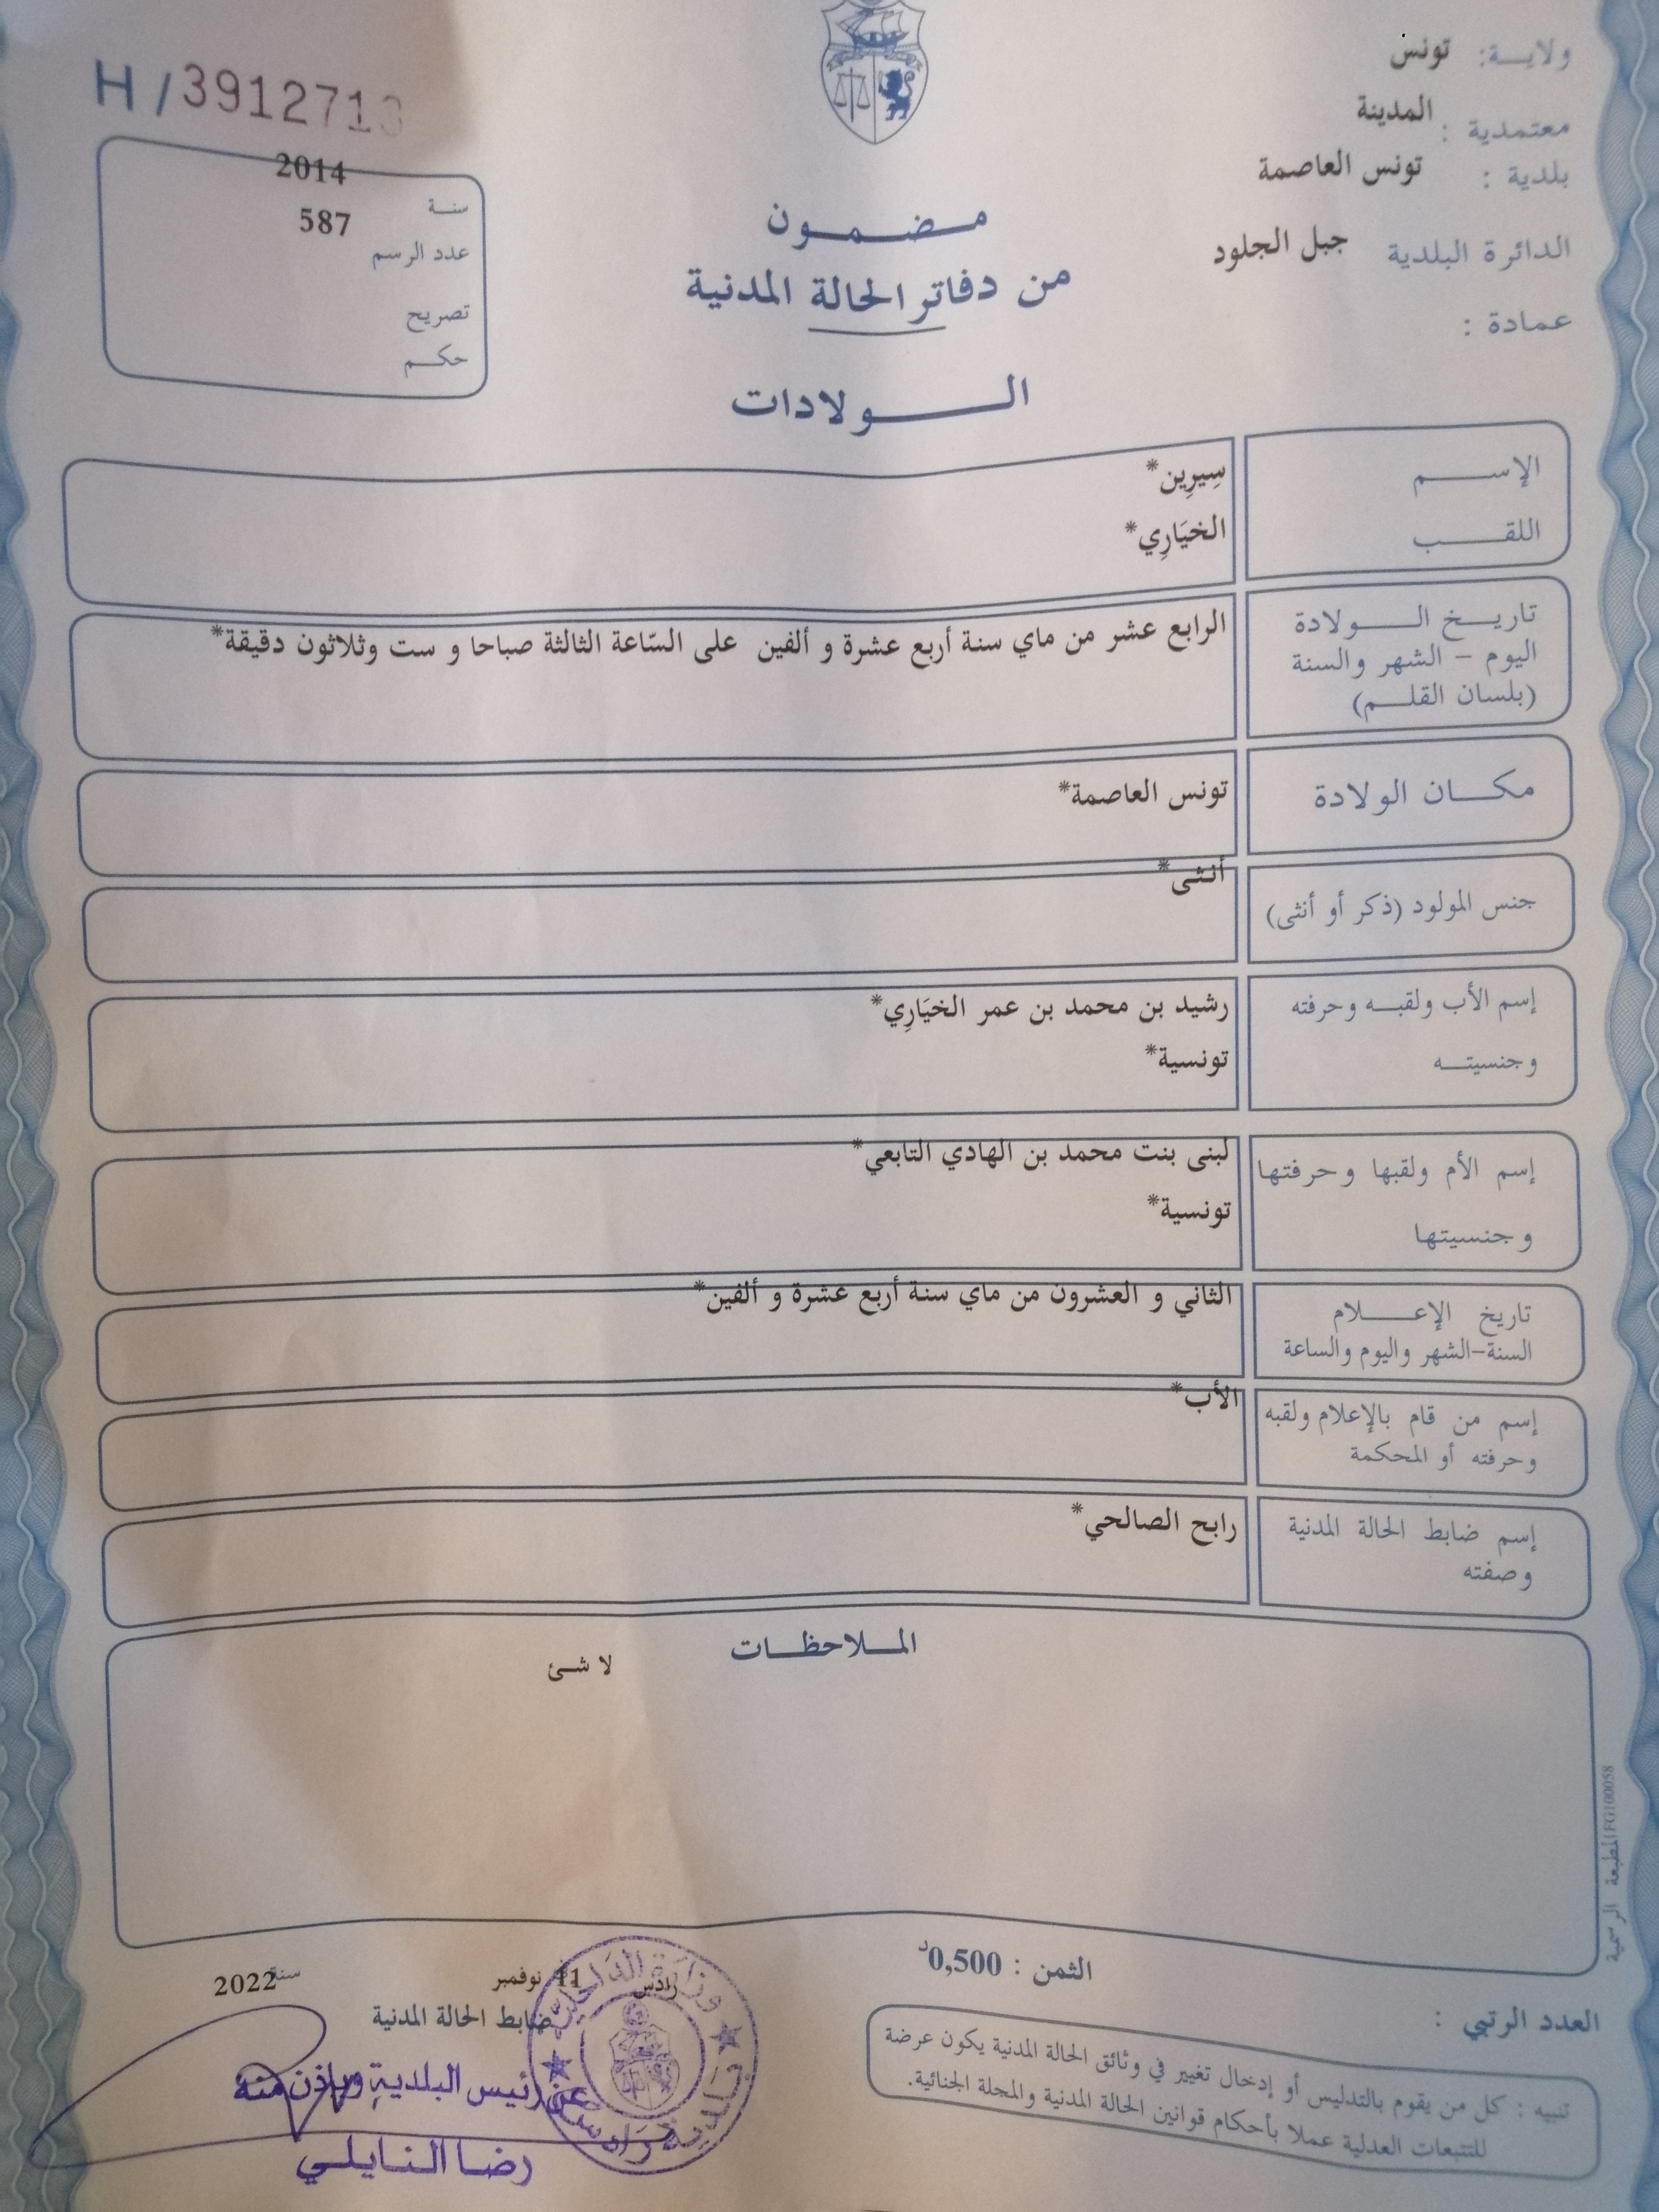 ولاية: تونس
معتمدية : المدينة
بلدية : تونس العاصمة
الدائرة البلدية جبل الجلود
عمادة :
H / 3912713
سنة 2014
عدد الرسم 587
تصريح
حكم
مضمون
من دفاتر الحالة المدنية
الولادات
الإسم سِيرِين*
اللقب الخيَارِي*
تاريخ الولادة
اليوم – الشهر والسنة
(بلسان القلم)
الرابع عشر من ماي سنة أربع عشرة و ألفين على السّاعة الثالثة صباحا و ست وثلاثون دقيقة*
مكان الولادة تونس العاصمة*
جنس المولود (ذكر أو أنثى) أنثى*
إسم الأب ولقبه وحرفته رشيد بن محمد بن عمر الخيَارِي*
وجنسيته تونسية*
إسم الأم ولقبها وحرفتها لبنى بنت محمد بن الهادي التابعي*
وجنسيتها تونسية*
تاريخ الإعلام
السنة-الشهر واليوم والساعة
الثاني و العشرون من ماي سنة أربع عشرة و ألفين*
إسم من قام بالإعلام ولقبه
وحرفته أو المحكمة
الأب*
إسم ضابط الحالة المدنية
وصفته
رابح الصالحي*
الملاحظات
لا شئ
المطبعة الرسمية FG100058
الثمن : 0,500د
العدد الرتبي :
تنبيه : كل من يقوم بالتدليس أو إدخال تغيير في وثائق الحالة المدنية يكون عرضة
للتتبعات العدلية عملا بأحكام قوانين الحالة المدنية والمجلة الجنائية.
رادس 11 نوفمبر سنة 2022
ضابط الحالة المدنية
عن رئيس البلدية وبإذن منه
رضا النايلي
وزارة الداخلية
بلدية رادس